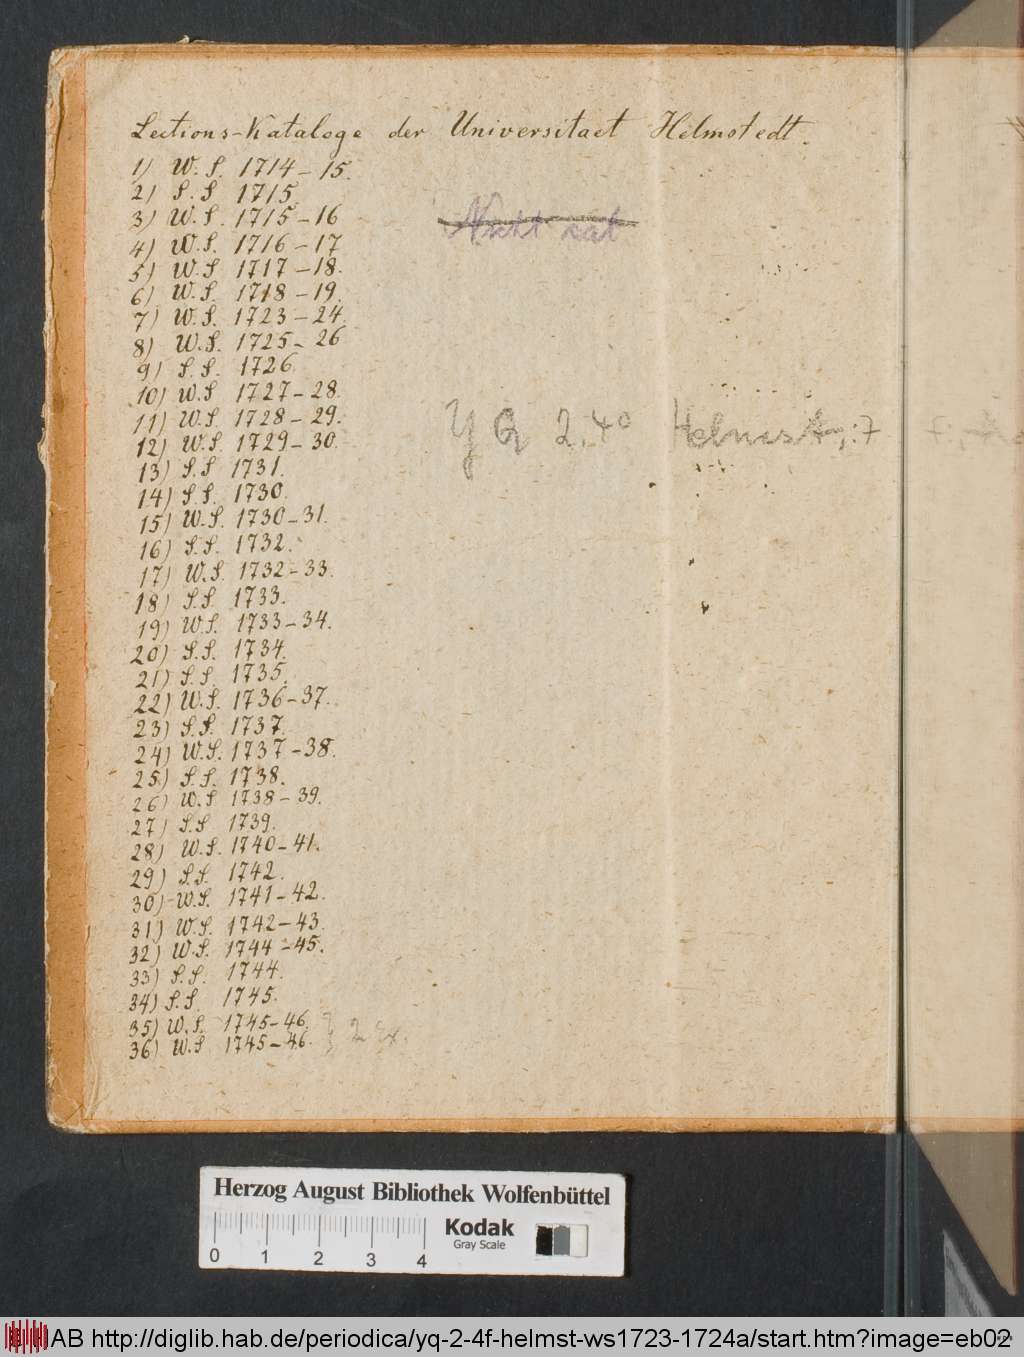 Lections-Kataloge der Universitaet Helmstedt.
1) W. S. 1714-15.
2) S. S 1715.
3) W. S. 1715-16
4) W. S. 1716-17
5) W. S 1717-18.
6) W. S. 1718-19.
7) W. S. 1723-24.
8) W. S. 1725-26
9) S. S. 1726.
10) W. S 1727-28.
11) W. S. 1728-29.
12) W. S. 1729-30.
13) S. S 1731.
14) S. S. 1730.
15) W. S. 1730-31.
16) S. S. 1732.
17) W. S. 1732-33.
18) S. S. 1733.
19) W. S. 1733-34.
20) S. S. 1734.
21) S. S. 1735.
22) W. S. 1736-37.
23) S. S. 1737.
24) W. S. 1737-38.
25) S. S. 1738.
26) W. S 1738-39.
27) S. S 1739.
28) W. S. 1740-41.
29) S. S. 1742.
30) W. S. 1741-42.
31) W. S. 1742-43.
32) W. S. 1744-45.
33) S. S. 1744.
34) S. S. 1745.
35) W. S. 1745-46.
36) W. S 1745-46. } 2 Ex.
Nicht kat
YQ 2.4° Helmst.:7
Herzog August Bibliothek Wolfenbüttel
0 1 2 3 4
Kodak
Gray Scale
HAB http://diglib.hab.de/periodica/yq-2-4f-helmst-ws1723-1724a/start.htm?image=eb02